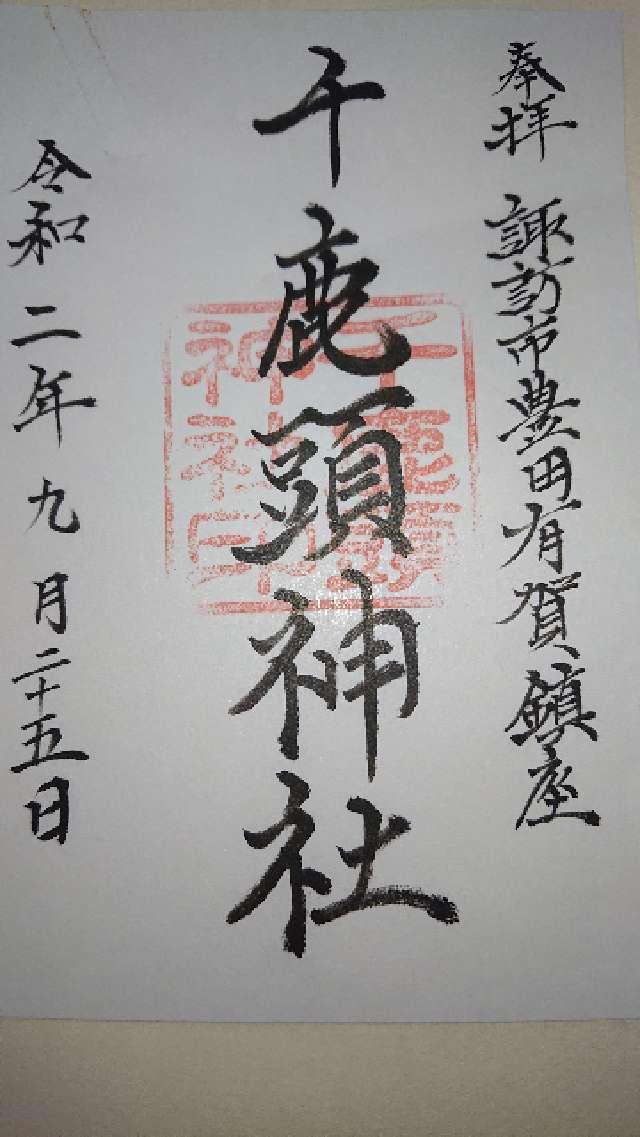 奉拝 諏訪市豊田有賀鎮座
千鹿頭神社
千鹿頭
神社印
令和二年九月二十五日